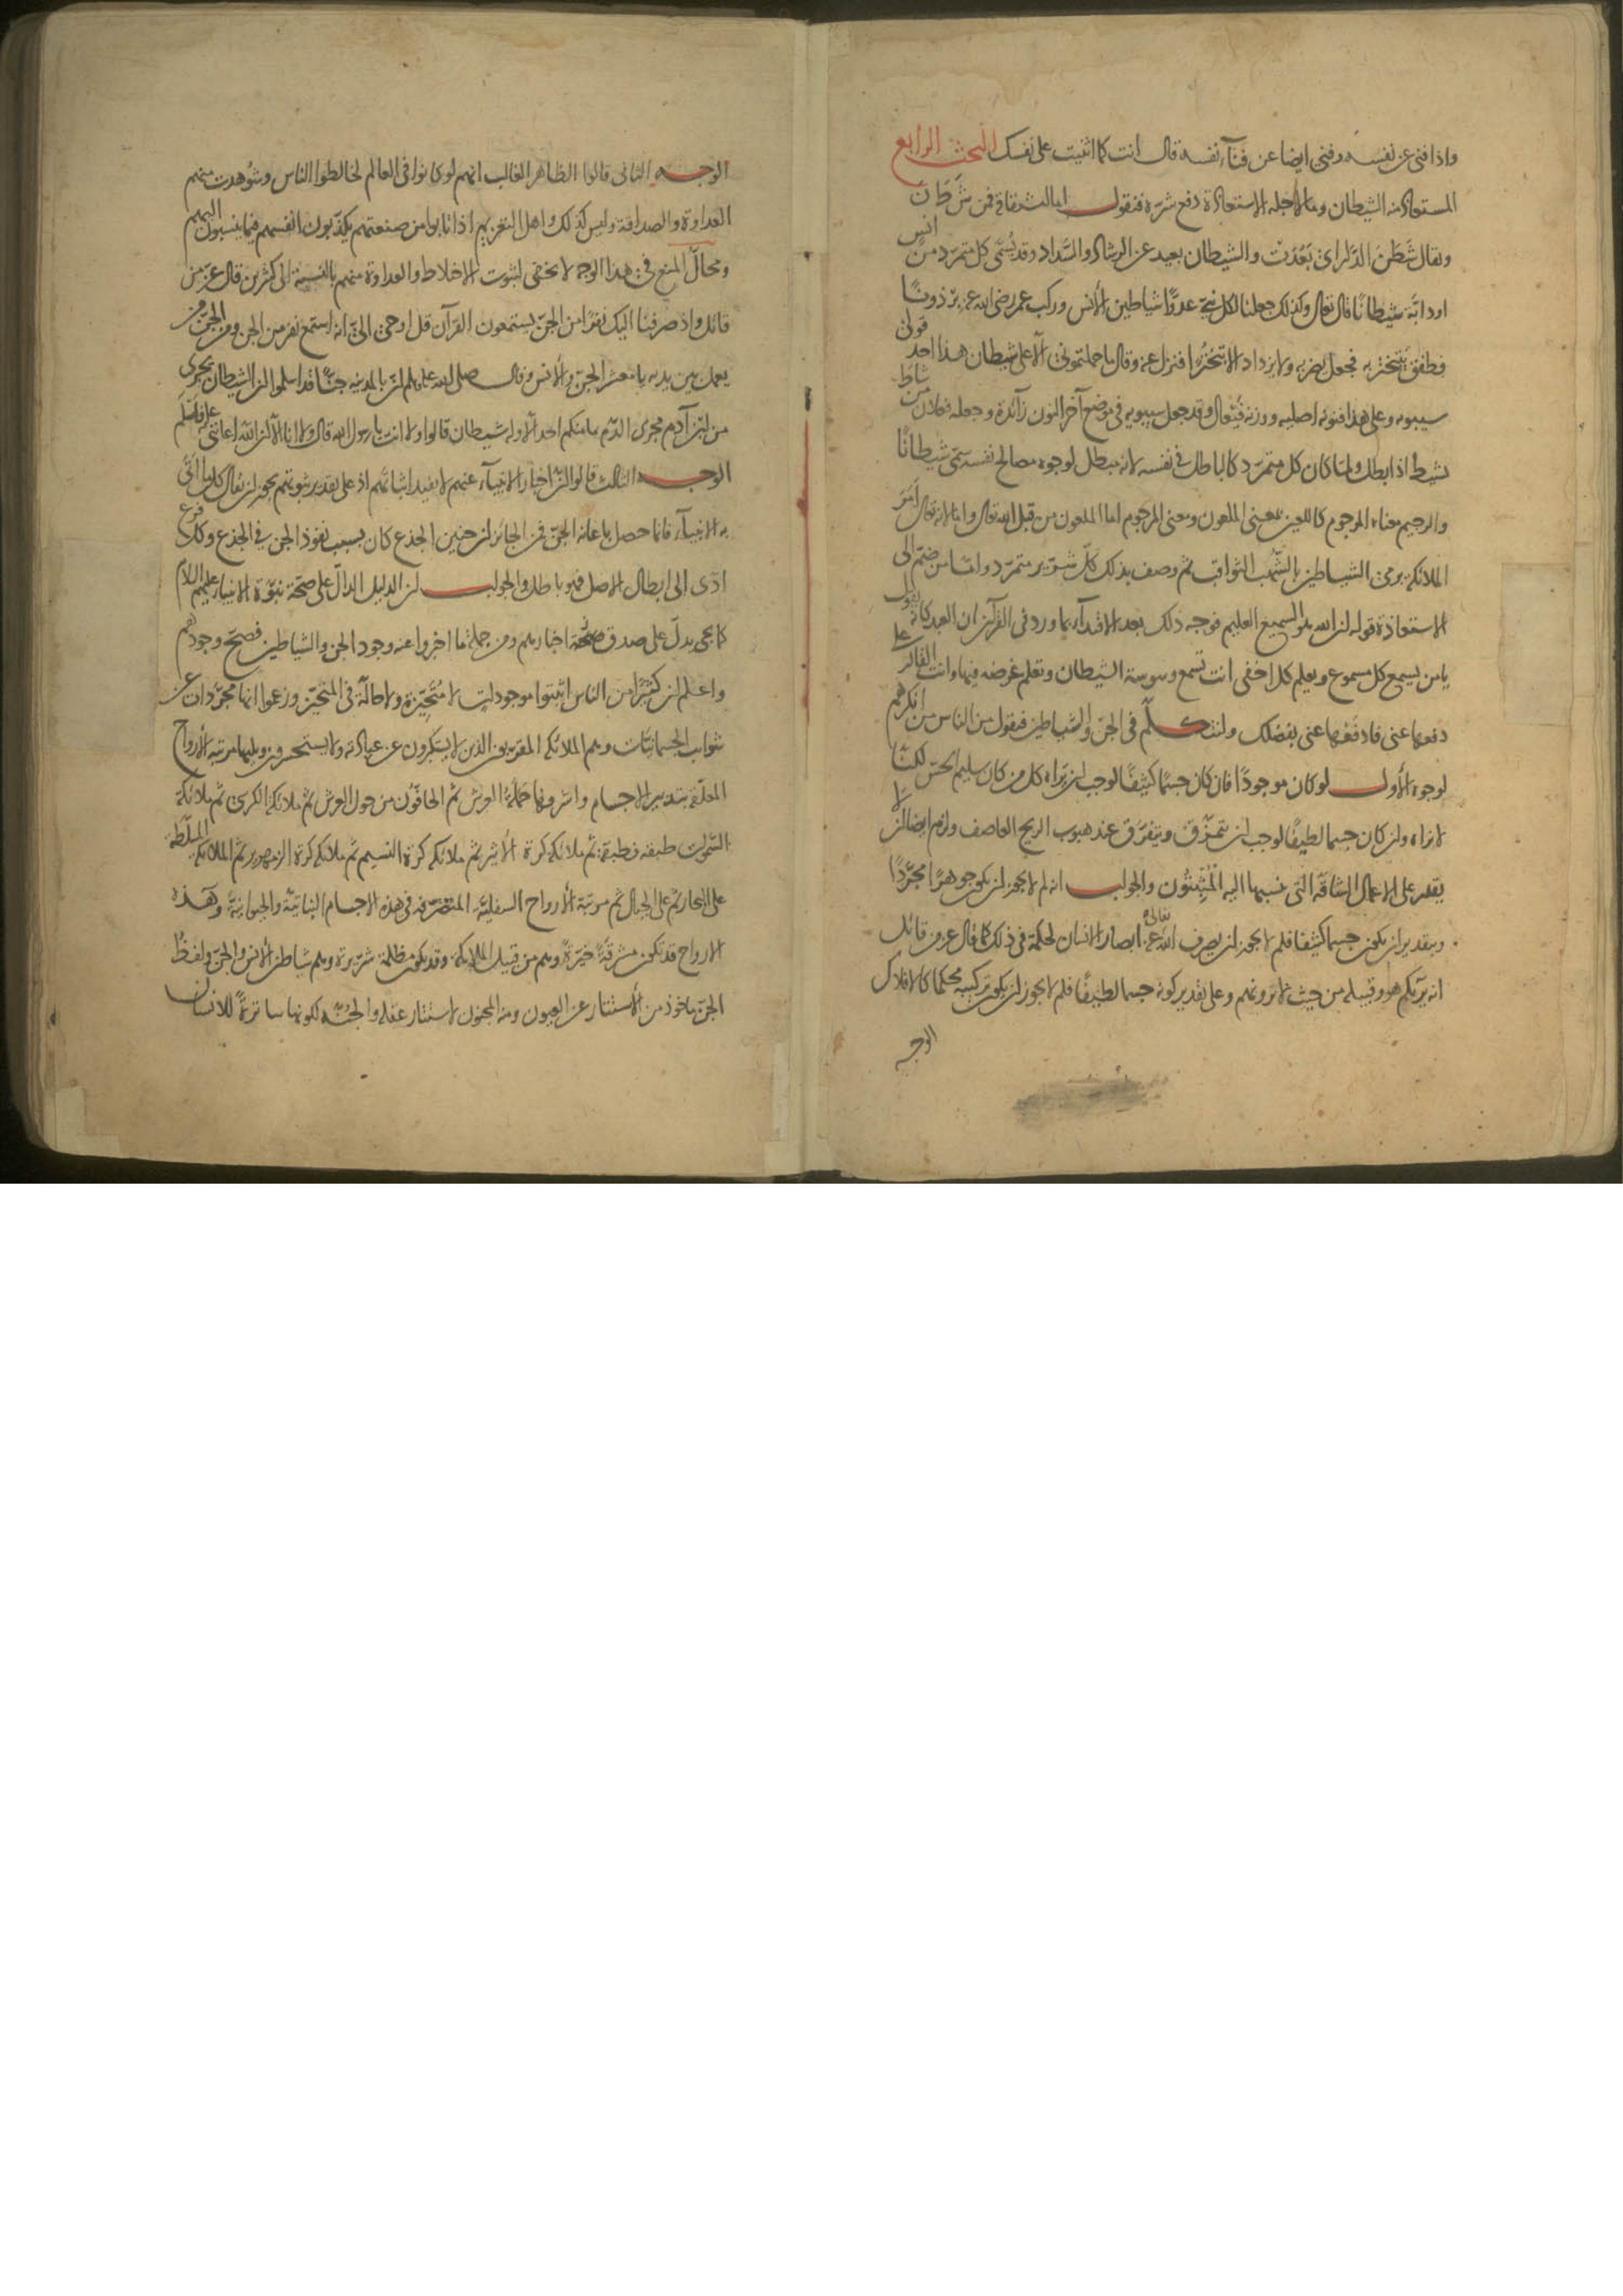 واذا فنى عن نفسه وفنى ايضا عن فناء نفسه قال انت كما اثنيت على نفسك البحث الرابع
المستعاذ منه الشيطان وما لاجله الاستعاذة دفع شره فنقول اما اشتقاقه فمن شَطَنَ
ويقال شَطَنَ الدّار اى بَعُدَت والشيطان بعيد عن الرشاد والسَّداد وقد يُسمّى كل متمرّد من انس
او دابّة شيطانًا قال تعالى وكذلك جعلنا لكل نبيّ عدوًّا شياطين الانس وركب عمر رضى الله عنه برذونًا
فطفق يتبختر به فجعل يضربه ولا يزداد الا تبخترًا فنزل عنه وقال ما حملتمونى الا على شيطان هذا احد قولى
سيبويه وعلى هذا فنونه اصليه ووزنه فَيْعال وقد جعل سيبويه فى موضع آخر النون زائدة وجعله فعلان من شاطَ
يشيط اذا بطل ولمّا كان كل متمرّد كالباطل فى نفسه لانه مبطل لوجوه مصالح نفسه سمّى شيطانًا
والرجيم معناه المرجوم كاللعين بمعنى الملعون ومعنى المرجوم اما الملعون من قبل الله تعالى واما لانه تعالى اَمَرَ
الملائكة برمى الشياطين بالشُّهب الثواقب ثم وصف بذلك كلّ شرّير متمرّد وامّا من ضمّ الى
الاستعاذة قوله ان الله هو السميع العليم فوجه ذلك بعد الاقتداء بما ورد فى القرآن ان العبد كانه يقول
يا من يسمع كل مسموع ويعلم كل اخفى انت تسمع وسوسة الشيطان وتعلم غرضه فيها وانت القادر على
دفعها عنى فادفعها عنى بفضلك ولنتكلّم فى الجنّ والشياطين فنقول من الناس من انكرهم
لوجوه الأول لو كان موجودًا فان كان جسمًا كثيفًا لوجب ان يراه كل من كان سليم الحسّ لكنّا
لا نراه وان كان جسما لطيفًا لوجب ان يتمزّق ويتفرّق عند هبوب الريح العاصف ولزم ايضا ان لا
يقدر على الاعمال الشاقّة التى ينسبها اليه المُثبِتُون والجواب انه لم لا يجوز ان يكون جوهرًا مجرّدًا
وبتقدير ان يكون جسما كثيفا فلم لا يجوز ان يصرف الله تعالى عنه ابصار الانسان لحكمة فى ذلك كما قال عز من قائل
انه يريكم هو وقبيله من حيث لا ترونهم وعلى تقدير كونه جسما لطيفًا فلم لا يجوز ان يكون تركيبه محكما كالافلاك
الوجه
الوجه الثانى قالوا الظاهر الغالب انهم لو كانوا فى العالم لخالطوا الناس وشوهدت منهم
العداوة والصداقة وليس كذلك واهل التعزيم اذا تابوا من صنعتهم يكذّبون انفسهم فيما ينسبون اليهم
ومحالّ المنع فى هذا الوجه لا يخفى لثبوت الاخلاط والعداوة منهم بالنسبة الى كثيرين قال عز من
قائل واذ صرفنا اليك نفرًا من الجنّ يستمعون القرآن قل اوحى الىّ انه استمع نفر من الجن ومن الجنّ من
يعمل بين يديه يا معشر الجنّ والانس وقال صلى الله عليه وسلم ان بالمدينه جنًّا قد اسلموا ان الشيطان يجرى
من ابن آدم مجرى الدّم ما منكم احد الا وله شيطان قالوا ولا انت يا رسول الله قال ولا انا الا ان الله اعاننى عليه فاسلم
الوجه الثالث قالوا انّ اخبار الانبياء عنهم لا يفيد اثباتهم اذ على تقدير ثبوتهم يجوز ان يقال كل ما اتى
به الانبياء فانما حصل باعانة الجنّ فمن الجائز ان حنين الجذع كان بسبب نفوذ الجن فى الجذع وكل فرع
ادّى الى ابطال الاصل فهو باطل والجواب ان الدليل الدالّ على صحّة نبوّة الانبياء عليهم السلام
يدلّ على صدق اخبارهم ومن جملة ما اخبروا عنه وجود الجن والشياطين فصحّ وجودهم
واعلم ان كثيرًا من الناس اثبتوا موجودات لا متحيّزة ولا حالّة فى المتحيّز وزعموا انها مجرّدات عن
شوائب الجسمانيّات وهم الملائكه المقرّبون الذين لا يستكبرون عن عبادته ولا يستحسرون ويليها مرتبة الأرواح
المتعلّقة بتدبير الاجسام واشرفها حَمَلَةُ العرش ثم الحافّون من حول العرش ثم ملائكة الكرسى ثم ملائكة
السّموات طبقه فطبقة ثم ملائكه كرة الأثير ثم ملائكه كرة النسيم ثم ملائكه كرة الزمهرير ثم الملائكه المسلّطة
على البحار ثم على الجبال ثم مرتبة الأرواح السفليّة المتصرّفة فى هذه الاجسام النباتيّة والحيوانيّة وهذه
الارواح قد تكون مشرقةً خيّرةً وهم من قبيل الملائكة وقد يكون مظلمة شرّيرة وهم شياطين الانس والجنّ ولفظ
الجنّ ماخوذ من الأستتار عن العيون ومنه المجنون لاستتار عقله والجُنّة لكونها ساترةً للانسان